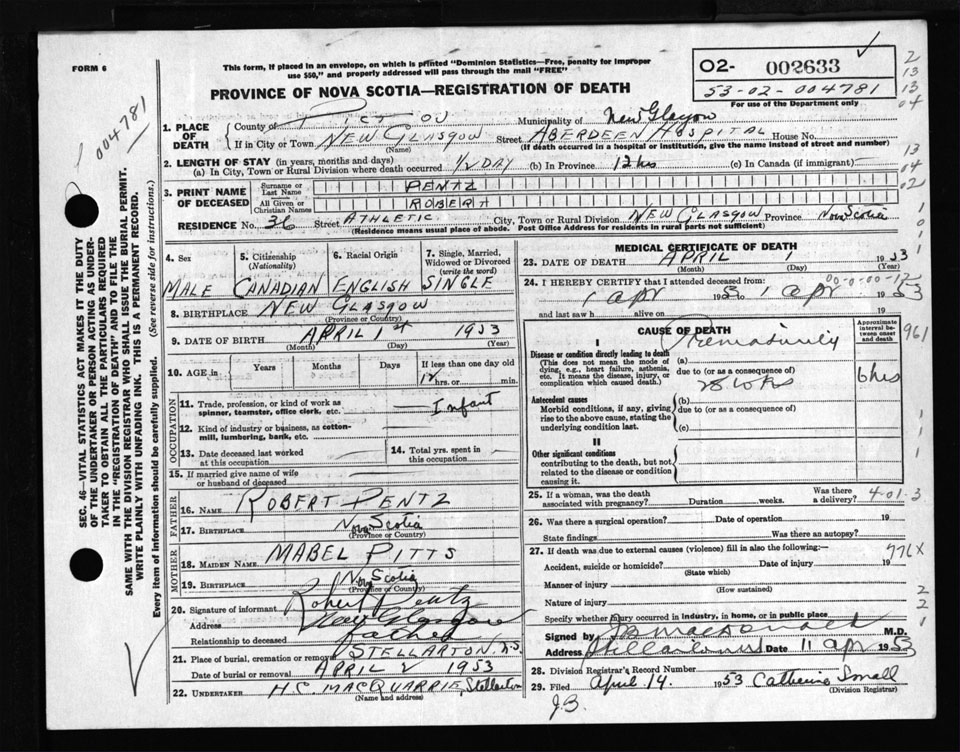 FORM 6
This form, if placed in an envelope, on which is printed "Dominion Statistics—Free, penalty for improper
use $50," and properly addressed will pass through the mail "FREE"
O2- 002633
53-02-004781
For use of the Department only
PROVINCE OF NOVA SCOTIA—REGISTRATION OF DEATH
004781
1. PLACE OF DEATH
County of PICTOU Municipality of New Glasgow
If in City or Town NEW GLASGOW (Name) Street ABERDEEN HOSPITAL House No.
(If death occurred in a hospital or institution, give the name instead of street and number)
2. LENGTH OF STAY (in years, months and days)
(a) In City, Town or Rural Division where death occurred 1/2 DAY (b) In Province 12 hrs (c) In Canada (if immigrant)
3. PRINT NAME OF DECEASED
Surname or Last Name PENTZ
All Given or Christian Names ROBERT
RESIDENCE No. 36 Street ATHLETIC City, Town or Rural Division NEW GLASGOW Province Nova Scotia
(Residence means usual place of abode. Post Office Address for residents in rural parts not sufficient)
4. Sex
5. Citizenship (Nationality)
6. Racial Origin
7. Single, Married, Widowed or Divorced (write the word)
MALE CANADIAN ENGLISH SINGLE
8. BIRTHPLACE NEW GLASGOW
(Province or Country)
9. DATE OF BIRTH APRIL 1st 1953
(Month) (Day) (Year)
10. AGE in Years Months Days If less than one day
12 hrs. or min.
OCCUPATION
11. Trade, profession, or kind of work as spinner, teamster, office clerk, etc. Infant
12. Kind of industry or business, as cotton-mill, lumbering, bank, etc.
13. Date deceased last worked at this occupation
14. Total yrs. spent in this occupation
15. If married give name of wife or husband of deceased
FATHER
16. NAME ROBERT PENTZ
17. BIRTHPLACE Nova Scotia
(Province or Country)
MOTHER
18. MAIDEN NAME MABEL PITTS
19. BIRTHPLACE Nova Scotia
(Province or Country)
20. Signature of informant Robert Pentz
Address New Glasgow
Relationship to deceased father
21. Place of burial, cremation or removal STELLARTON, N.S.
Date of burial or removal APRIL 2 1953
22. UNDERTAKER H.C. MACQUARRIE, Stellarton
(Name and address)
MEDICAL CERTIFICATE OF DEATH
23. DATE OF DEATH APRIL 1 1953
(Month) (Day) (Year)
24. I HEREBY CERTIFY that I attended deceased from:
1 apr 1953 to 1 apr 1953
and last saw h alive on 19
CAUSE OF DEATH
Approximate interval between onset and death
I
Disease or condition directly leading to death
(This does not mean the mode of dying, e.g., heart failure, asthenia, etc. It means the disease, injury, or complication which caused death.)
(a) Prematurity
due to (or as a consequence of)
28 wks
6 hrs
Antecedent causes
Morbid conditions, if any, giving rise to the above cause, stating the underlying condition last.
(b)
due to (or as a consequence of)
(c)
II
Other significant conditions
contributing to the death, but not related to the disease or condition causing it.
25. If a woman, was the death associated with pregnancy? Duration weeks. Was there a delivery? 4-01-3
26. Was there a surgical operation? Date of operation 19
State findings Was there an autopsy?
27. If death was due to external causes (violence) fill in also the following:
776X
Accident, suicide or homicide? Date of injury 19
(State which)
Manner of injury
(How sustained)
Nature of injury
Specify whether injury occurred in industry, in home, or in public place
Signed by M.D.
Address Stellarton Date 11 apr 1953
28. Division Registrar's Record Number
29. Filed April 14. 1953 Catherine Small
(Division Registrar)
J.B.
961
SEC. 46—VITAL STATISTICS ACT MAKES IT THE DUTY
OF THE UNDERTAKER OR PERSON ACTING AS UNDER-
TAKER TO OBTAIN ALL THE PARTICULARS REQUIRED
IN THE "REGISTRATION OF DEATH" AND TO FILE THE
SAME WITH THE DIVISION REGISTRAR WHO SHALL ISSUE THE BURIAL PERMIT.
WRITE PLAINLY WITH UNFADING INK. THIS IS A PERMANENT RECORD.
Every item of information should be carefully supplied. (See reverse side for instructions.)